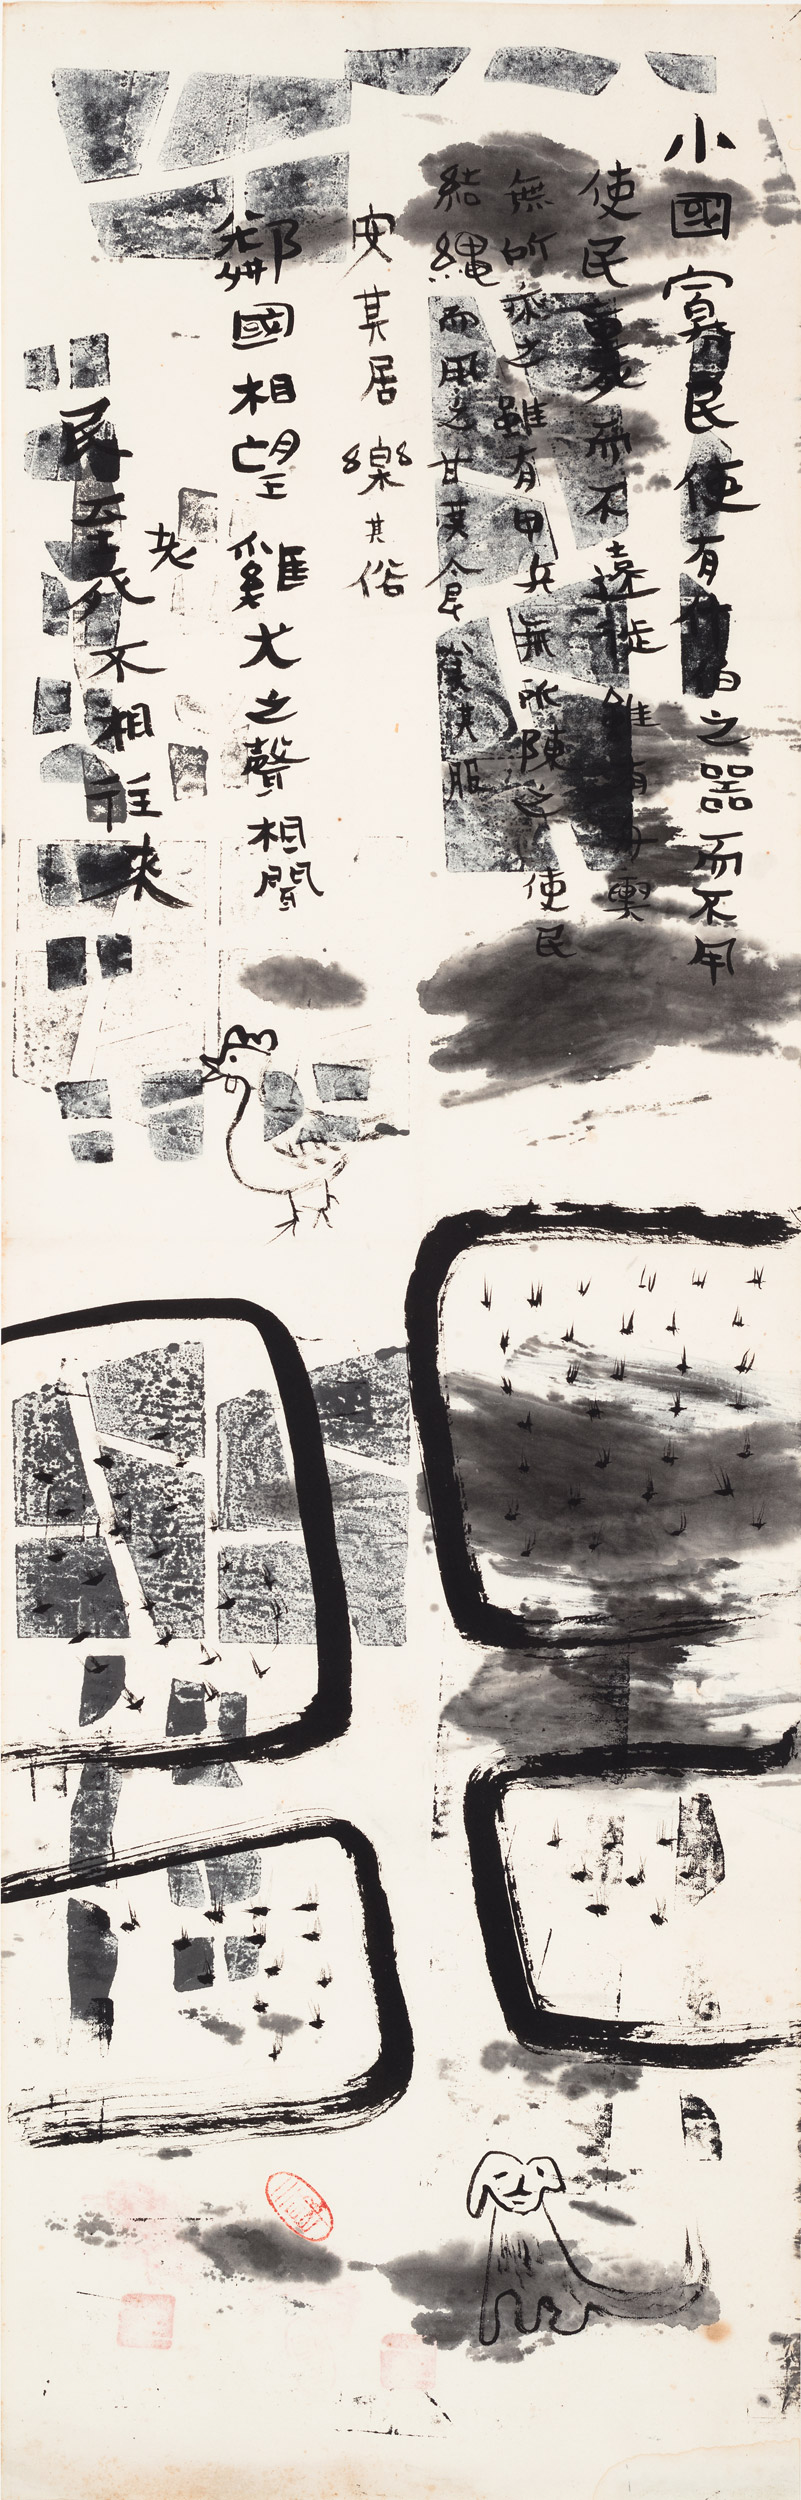 小國寡民使有什伯之器而不用
使民重死而不遠徙雖有舟輿
無所乘之雖有甲兵無所陳之使民
結縄而用之甘其食美其服
安其居樂其俗
鄰國相望雞犬之聲相聞
老
民至死不相往來